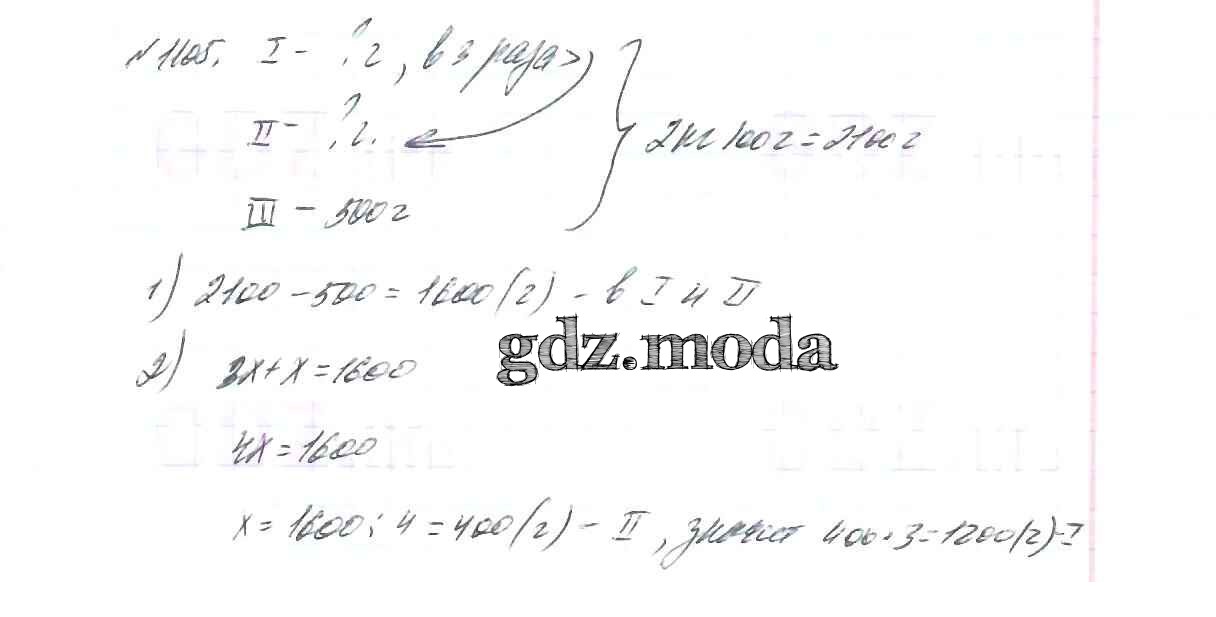 №1105. I - ?г, в 3 раза >
II - ?г.
III - 500г
2кг 100г = 2100г
1) 2100 - 500 = 1600 (г) - в I и II
2) 3x + x = 1600
gdz.moda
4x = 1600
x = 1600 : 4 = 400 (г) - II, значит 400 · 3 = 1200 (г) - I